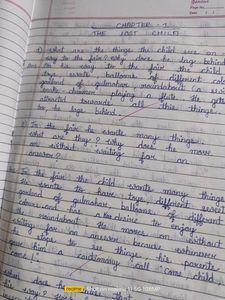 CHAPTER - 1
THE LOST CHILD
1) What are the things the child sees on
way to the fair? Why does he lag behind
Ans On his way to the fair the child
toys sweets balloons of different
garland of gulmohar, roundabouts
snake-charmer playing a flute. He gets
attracted towards all this things
so, he lags behind.
2) In the fair he wants many things.
What are they? Why does he move
on without waiting for an
answer?
the fair the child wants many things
He wants to have toys, different sweets
garland of gulmohar, balloons of different
colour and has a desire to enjoy
the roundabout. He moves without
waiting for an answer because whenever
he stops to see things, his parents
gave him a cautionary call "Come child,
come."
When does he
his way?
realme Shot on realme 11 5G 108MP